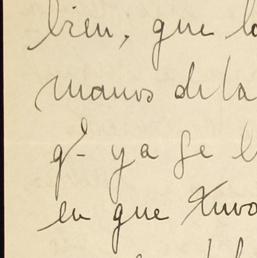 bien, que l
manos de la
q- ya se l
en que tuvo